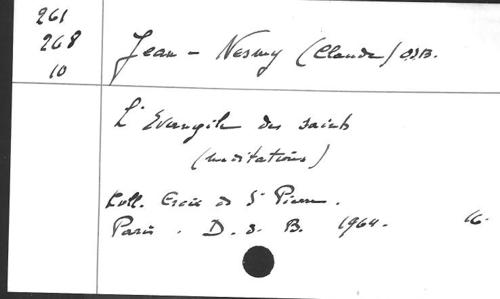 261
268
10
Jean - Nesmy (Claude) OSB.
L'Evangile des saints
(meditations)
Coll. Croix de St Pierre.
Paris. D. d. B. 1964. 16.